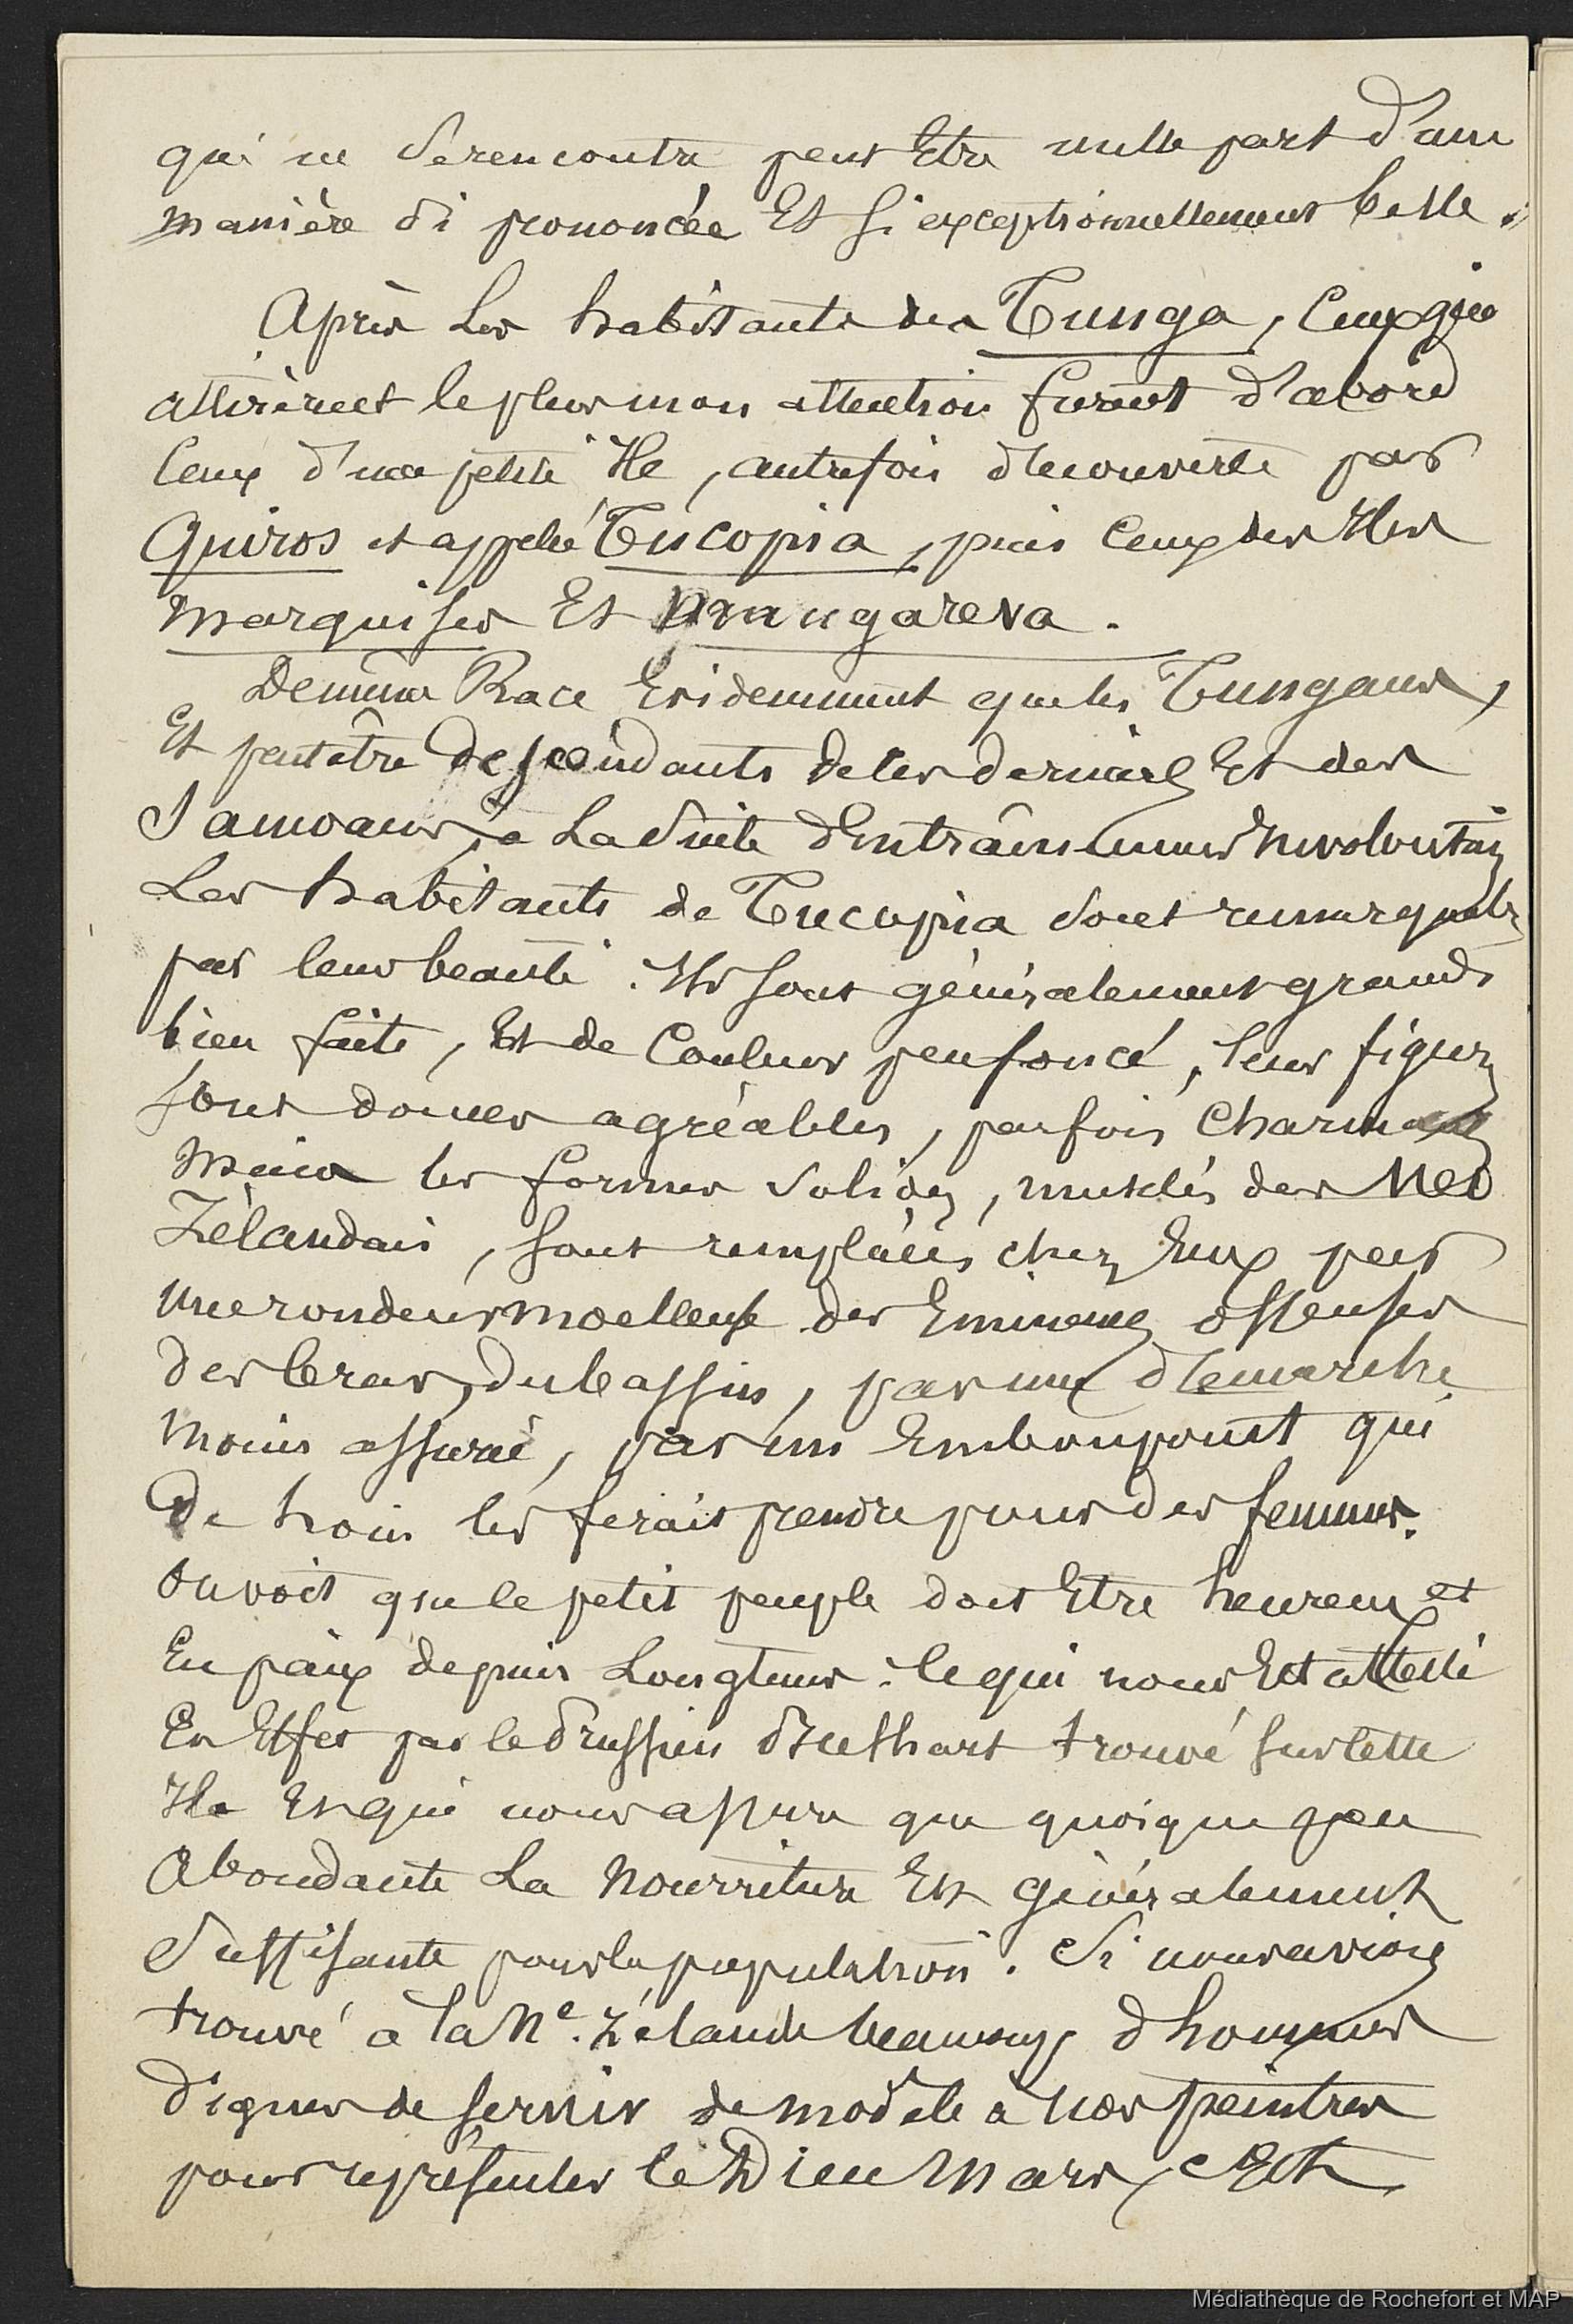 qui ne se rencontre peut Etre nulle part d'une
manière si prononcée Et si exceptionnellement belle.
Après les habitants des Tunga, Ceux qui
attirèrent le plus mon attention furent d'abord
Ceux d'une petite Ile, autrefois découverte par
Quiros et appelée Tucopia, puis Ceux des Iles
Marquises Et Mangareva.
De même Race Evidemment que les Tungans,
Et peut être descendants de ces derniers Et des
Samoans, à la suite d'Entraînements Involontaires
Les habitants de Tucopia sont remarquables
par leur beauté. Ils sont généralement grands
bien faits, Et de Couleur peu foncé, leurs figures
sont douces agréables, parfois Charmantes
Mais les formes solides, musclés des Néo
Zélandais, sont remplacées chez Eux par
une rondeur moelleuse des Eminences osseuses
des bras, du bassin, par une démarche
moins assurée, par un Embonpoint qui
De loin les ferait prendre pour des femmes.
On voit que le petit peuple doit Etre heureux et
En paix depuis Longtems. Ce qui nous Est attesté
En Effet par le Prussien Bushart trouvé sur cette
Ile Et qui nous assure que quoique peu
Abondante La Nourriture Est généralement
Suffisante pour la population. Si nous avions
trouvé à la Ne. Zélande beaucoup d'hommes
Dignes de servir de modèle à nos peintres
pour représenter le Dieu Mars, C'Est
Médiathèque de Rochefort et MAP